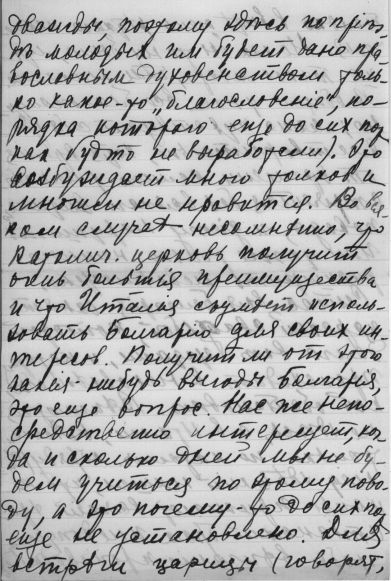 дважды, поэтому здесь по приѣз-
дѣ молодых им будет дано пра-
вославным духовенством толь-
ко какое-то „благословеніе", по-
рядка которого еще до сих пор
как будто не выработали). Это
возбуждает много толков и
многим не нравится. Во вся-
ком случаѣ несомнѣнно, что
католич. церковь получит
очень большія преимущества
и что Италія сумѣет исполь-
зовать Болгарію для своих ин-
тересов. Получит ли от этого
какія-нибудь выгоды Болгарія,
это еще вопрос. Нас же непо-
средственно интересует, ког-
да и сколько дней мы не бу-
дем учиться по этому пово-
ду, а это почему-то до сих пор
еще не установлено. Для
встрѣчи царицы (говорят,